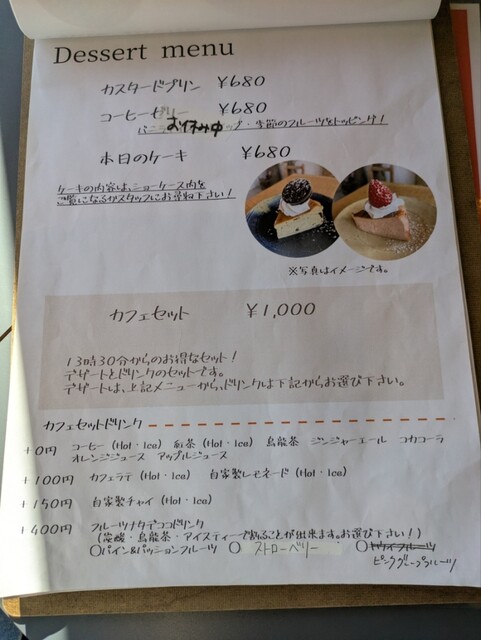 Dessert menu
カスタードプリン ￥680
コーヒーゼリー ￥680
お休み中
バニラ ップ・季節のフルーツをトッピング！
本日のケーキ ￥680
ケーキの内容は、ショーケース内を
ご覧になるかスタッフにお尋ね下さい！
※写真はイメージです。
カフェセット ￥1,000
13時30分からのお得なセット！
デザートとドリンクのセットです。
デザートは、上記メニューから、ドリンクは下記からお選び下さい。
カフェセットドリンク
+0円 コーヒー(Hot・Ice) 紅茶(Hot・Ice) 烏龍茶 ジンジャーエール コカコーラ
オレンジジュース アップルジュース
+100円 カフェラテ(Hot・Ice) 自家製レモネード(Hot・Ice)
+150円 自家製チャイ(Hot・Ice)
+400円 フルーツナタデココドリンク
(炭酸・烏龍茶・アイスティーで割ることが出来ます。お選び下さい！)
○パイン&パッションフルーツ ○ ストローベリー ○キウイフルーツ
ピンクグレープフルーツ